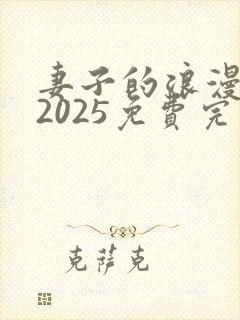 妻子的浪漫
2025免費完
克萨克